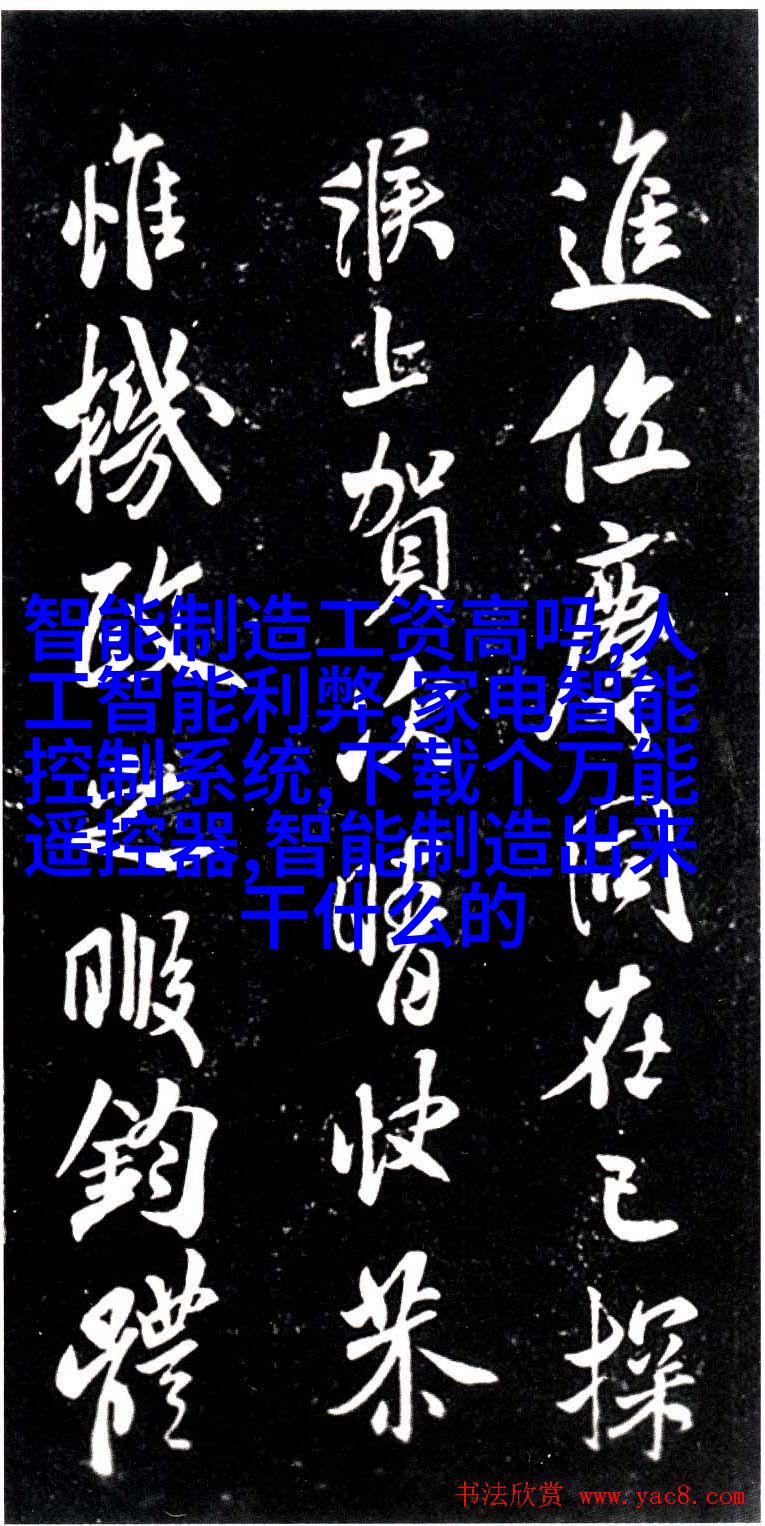 進位慶同在已探
候上賀次晴快恭
惟機政之暇鈞體
智能制造工资高吗,人
工智能利弊,家电智能
控制系统,下载个万能
遥控器,智能制造出来
干什么的
书法欣赏 www.yac8.com